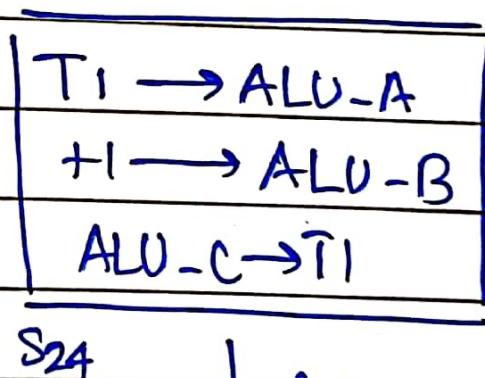 T1 → ALU-A
+1 → ALU-B
ALU-C → T1
S24